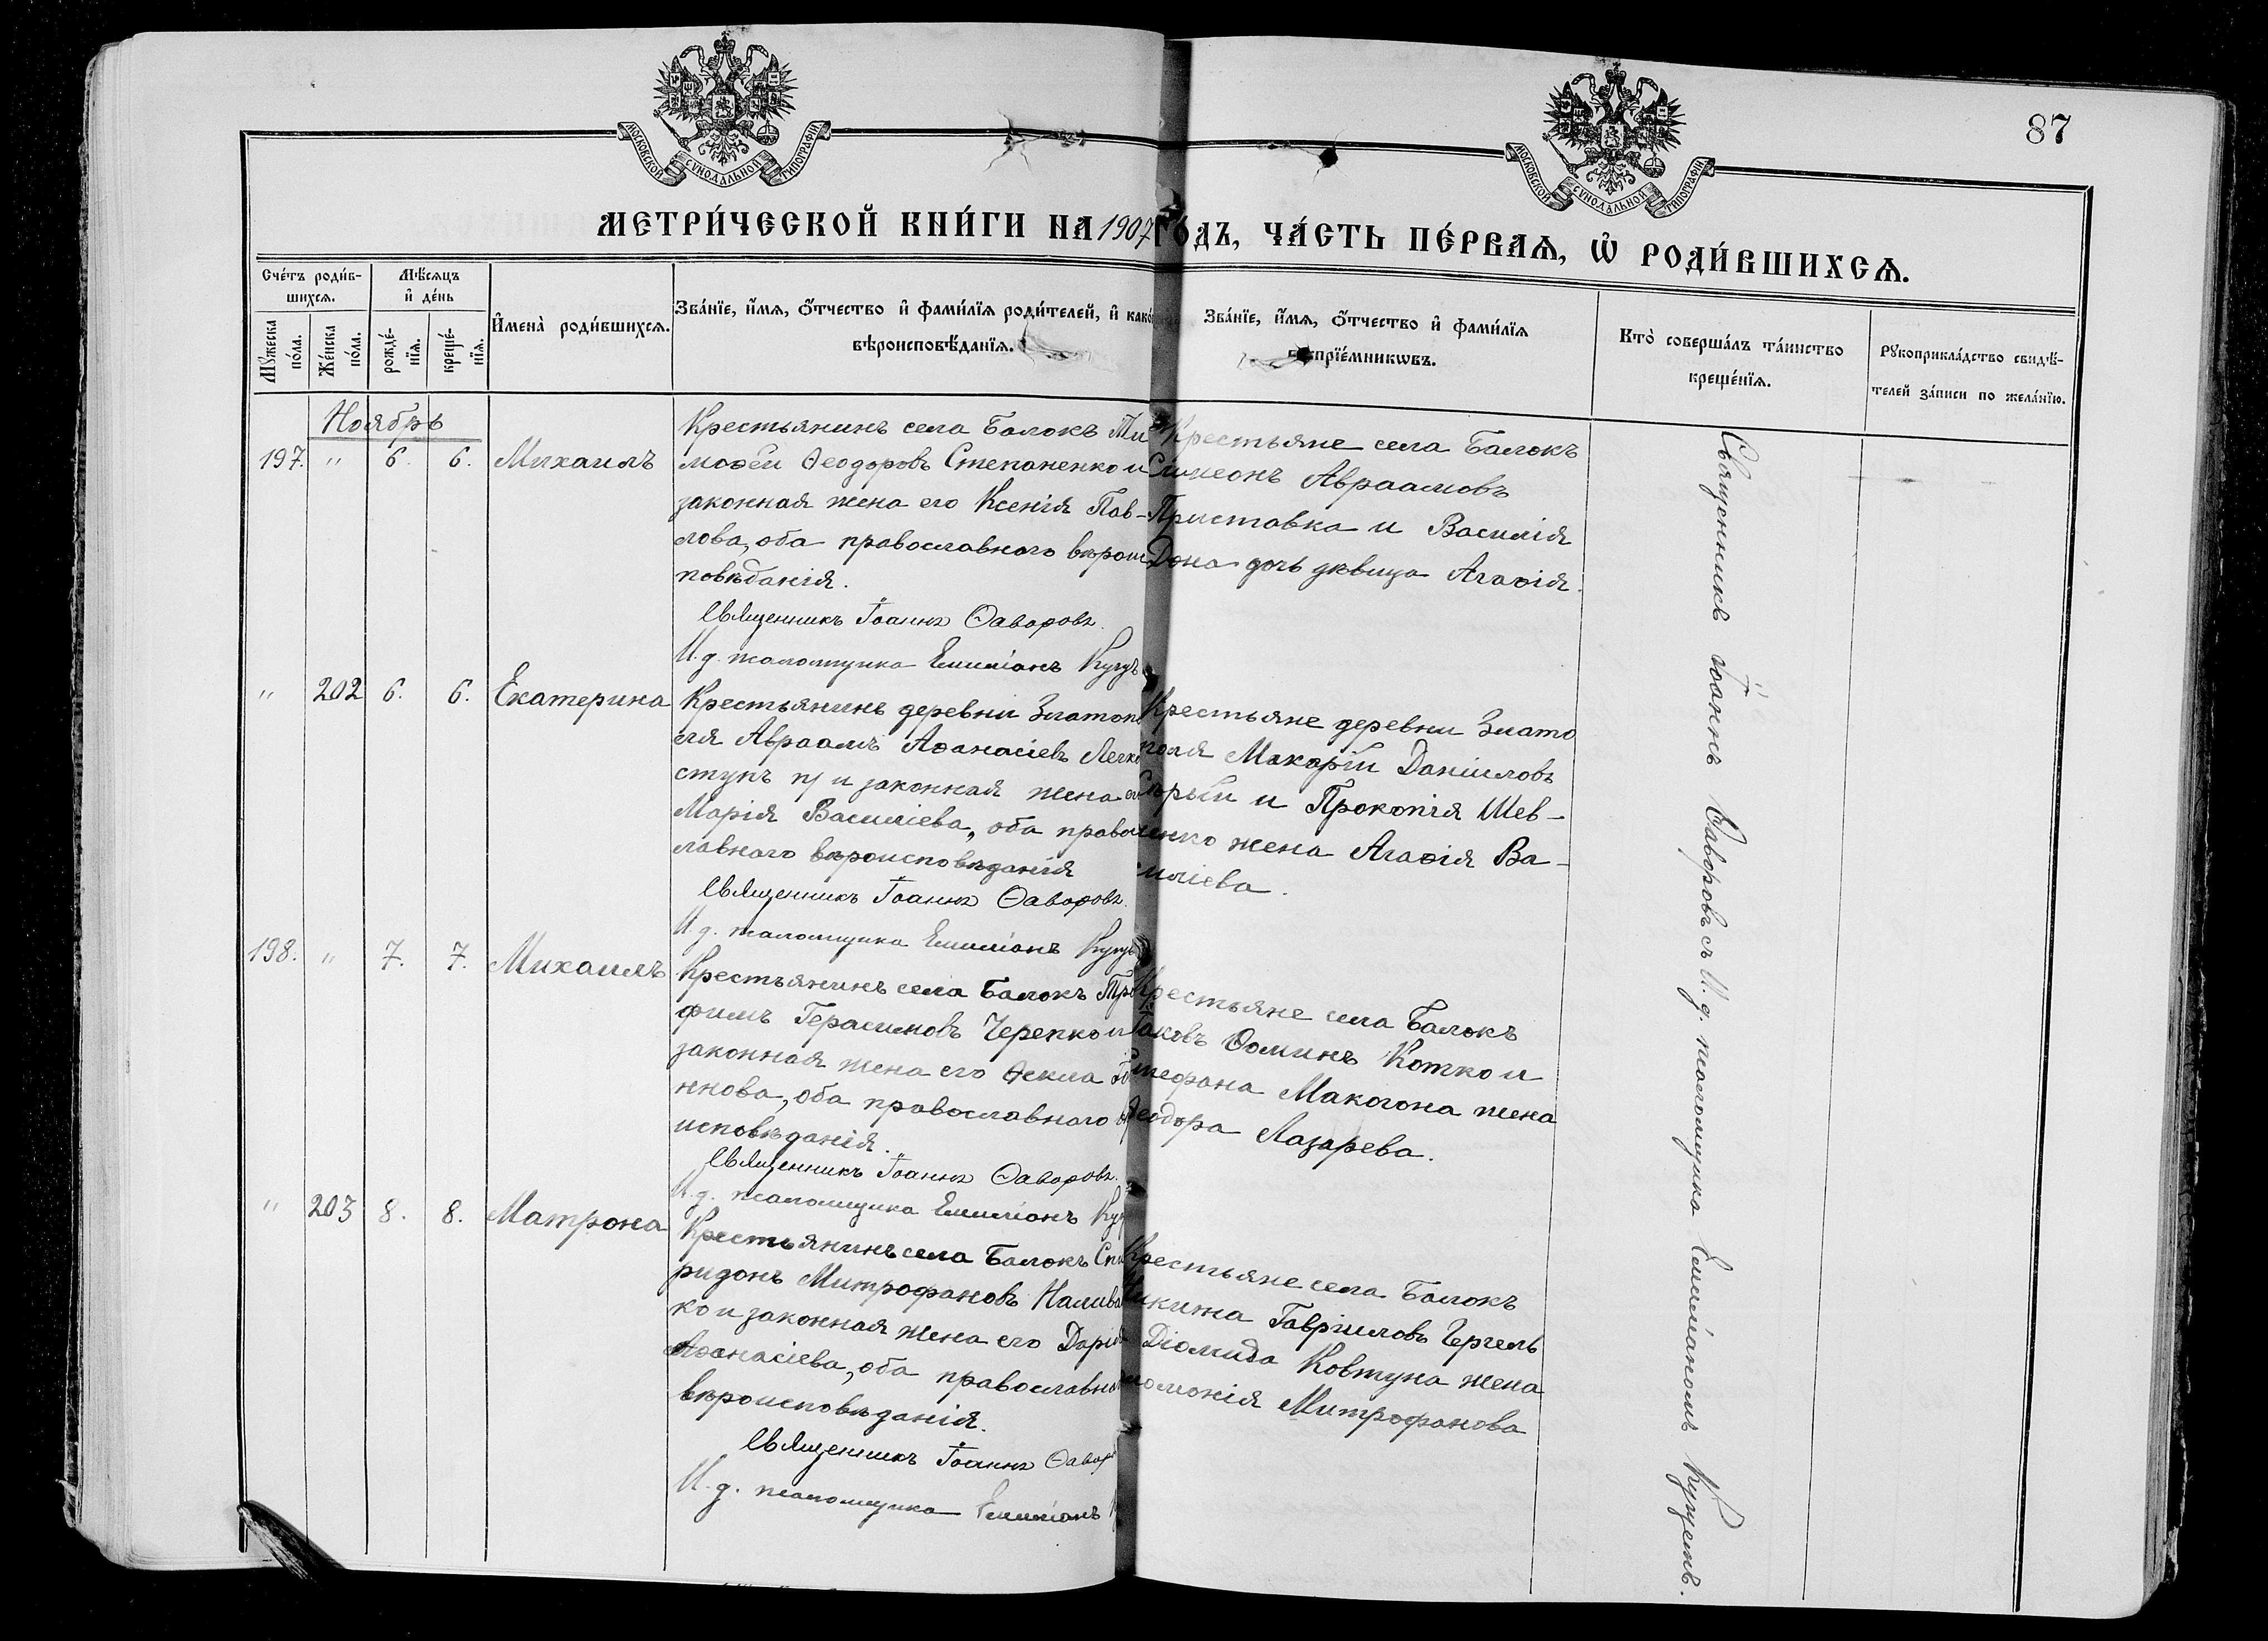 87
МОСКОВСКОЙ СѴНОДАЛЬНОЙ ТИПОГРАФІИ.
МОСКОВСКОЙ СѴНОДАЛЬНОЙ ТИПОГРАФІИ.
МЕТРИ́ЧЕСКОЙ КНИ́ГИ НА 1907 ГО́ДЪ, ЧА́СТЬ ПЕ́РВАѦ, Ѡ҆ РОДИ́ВШИХСѦ.
Сче́тъ роди́в-
шихсѧ.
Мѣ́сѧцъ
и҆ де́нь
Мꙋ́жеска
по́ла.
Же́нска
по́ла.
рожде́-
нїѧ.
креще́-
нїѧ.
И҆мена̀ роди́вшихсѧ.
Зва́нїе, и҆́мѧ, ѻ҆́тчество и҆ фами́лїѧ роди́телей, и҆ како́
вѣроисповѣ́данїѧ.
Зва́нїе, и҆́мѧ, ѻ҆́тчество и҆ фами́лїѧ
прїе́мникѡвъ.
Кто̀ соверша́лъ та́инство
креще́нїѧ.
Рꙋкоприкла́дство свидѣ́-
телей за́писи по жела́нїю.
Ноябрь
197. " 6. 6. Михаилъ
Крестьянинъ села Балокъ Ти
моѳей Ѳеодоровъ Степаненко и
законная жена его Ксенія Пав-
лова, оба православнаго вѣроис
повѣданія.
Священникъ Іоаннъ Ѳаворовъ.
И. д. псаломщика Емиліанъ Куцъ
Крестьяне села Балокъ
Симеонъ Авраамовъ
Приставка и Василія
Дона дочь дѣвица Агаѳія.
" 202 6. 6. Екатерина
Крестьянинъ деревни Златопо
ля Авраамъ Аѳанасіевъ Легко
ступъ и законная жена его
Марія Василіева, оба правос
лавнаго вѣроисповѣданія
Священникъ Іоаннъ Ѳаворовъ.
И. д. псаломщика Емиліанъ Куцъ
Крестьяне деревни Злато
поля Макарій Даніиловъ
Сѣрый и Прокопія Шев-
ченко жена Агаѳія Ва-
силіева.
198. " 7. 7. Михаилъ
Крестьянинъ села Балокъ Тро
фимъ Герасимовъ Черепко и
законная жена его Ѳекла Іоа
ннова, оба православнаго вѣро
исповѣданія.
Священникъ Іоаннъ Ѳаворовъ.
И. д. псаломщика Емиліанъ Куц
Крестьяне села Балокъ
Іаковъ Ѳоминъ Котко и
Стефана Макогона жена
Ѳеодора Лазарева.
" 203 8. 8. Матрона
Крестьянинъ села Балокъ Спи
ридонъ Митрофановъ Налива
ко и законная жена его Дарія
Аѳанасіева, оба православна
вѣроисповѣданія.
Священникъ Іоаннъ Ѳавор
И. д. псаломщика Емиліанъ
Крестьяне села Балокъ
Никита Гавріиловъ Чергель
Діомида Ковтуна жена
Соломонія Митрофанова
Священникъ Іоаннъ Ѳаворовъ съ И. д. псаломщика Емиліаномъ Куцемъ.